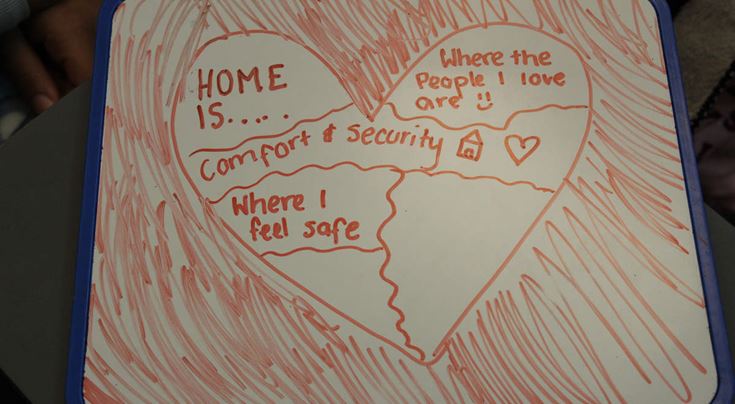 HOME
IS.....
Where the
People I love
are :)
Comfort & Security
Where I
feel safe